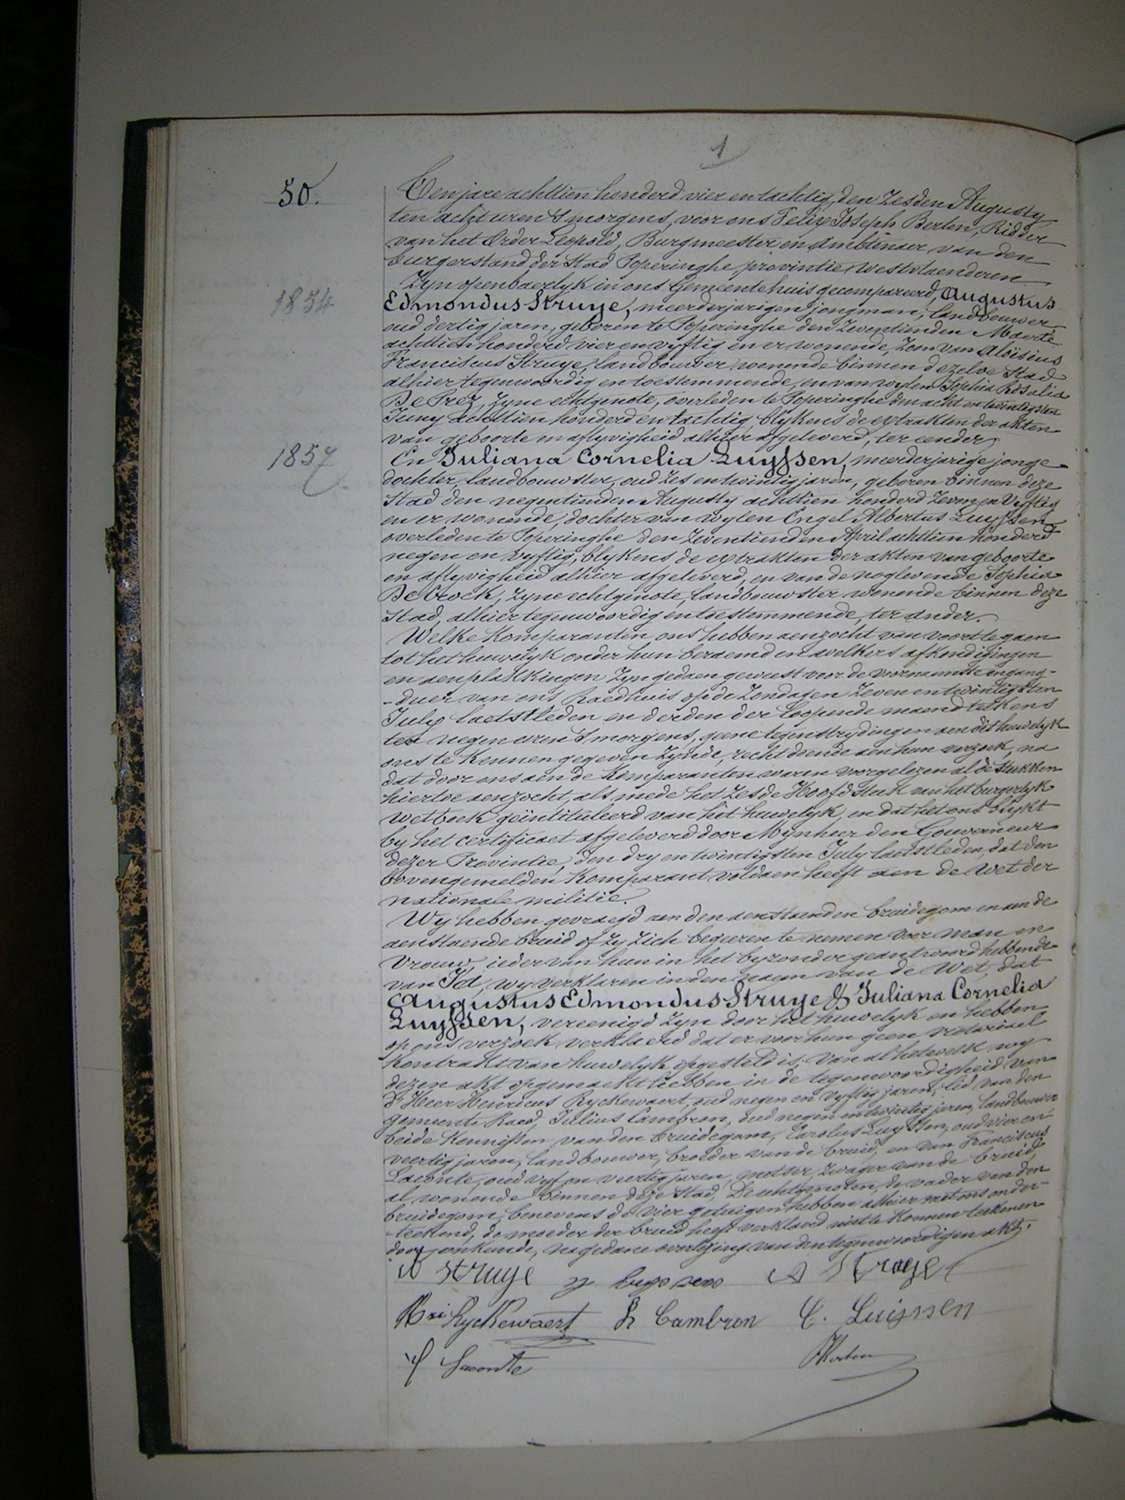 1
50.
Ten jare achttien honderd vier en tachtig, den Zesden Augusty
ten acht uren 's morgens, voor ons Felix Joseph Berten, Ridder
van het Order Leopold, Burgmeester en Ambtenaer van den
burgerstand der Stad Poperinghe, provintie Westvlaenderen
Zyn openbaerlyk in ons Gemeentehuis gecompareerd, Augustus
1854
Edmondus Struye, meerderjarigen jongman, landbouwer
oud dertig jaren, geboren te Poperinghe den Zeventienden Maerte
achttien honderd vier en vyftig en er wonende, Zoon van Aloïsius
Franciscus Struye, landbouwer wonende binnen dezelve Stad
alhier tegenwoordig en toestemmende, en van wylen Sophia Rosalia
De Prez, zyne echtgenote, overleden te Poperinghe den acht en twintigsten
Juny achttien honderd en tachtig, blykens de extrakten der akten
van geboorte en aflyvigheid alhier afgeleverd, ter eender
1857
En Juliana Cornelia Luyssen, meerderjarige jonge
dochter, landbouwster, oud Zes en twintig jaren, geboren binnen deze
Stad den negentienden Augusty achttien honderd Zeven en Vyftig
en er wonende, dochter van wylen Engel Albertus Luyssen
overleden te Poperinghe den Zeventienden April achttien honderd
negen en vyftig, blykens de extrakten der akten van geboorte
en aflyvigheid alhier afgeleverd, en van de noglevende Sophia
De Crock, zyne echtgenote, landbouwster wonende binnen deze
Stad, alhier tegenwoordig en toestemmende, ter ander.
Welke Komparanten ons hebben aenzocht van voordtegaen
tot het huwelyk onder hun beraemd en welkers afkondigingen
en aenplakkingen Zyn gedaen geweest voor de voornaemste ingang-
-deur van ons Raedhuis op de Zondagen Zeven en twintigsten
July laetstleden en derden der loopende maend telkens
ten negen uren 's morgens, geene tegenstrydingen aen dit huwelyk
ons te kennen gegeven Zynde, recht doende aen hun verzoek, na
dat door ons aen de komparanten waren voorgelezen al de stukken
hiertoe aenzocht, als mede het Zesde Hoofdstuk van het burgerlyk
wetboek geïntituleerd van het huwelyk, en dat het ons blykt
by het certificaet afgeleverd door Mynheer den Gouverneur
dezer Provintie, den dry en twintigsten July laetstleden, dat den
bovengemelden Komparant voldaen heeft aen de Wet der
nationale militie.
Wy hebben gevraegd aen den aenstaenden bruidegom en aen de
aenstaende bruid of zy Zich begeeren te nemen voor man en
vrouw, ieder van hun in het byzonder geantwoord hebbende
van Ja, wy verklaren in den naem van de Wet, dat
Augustus Edmondus Struye & Juliana Cornelia
Luyssen, vereenigd Zyn door het huwelyk en hebben
op ons verzoek verklaerd dat er voor hun geen notarieel
kontrakt van huwelyk opgesteld is, van al hetwelk wy
dezen akt opgemaekt hebben in de tegenwoordigheid van
d'Heer Henricus Ryckewaert, oud negen en vyftig jaren, lid van den
gemeente Raed, Julius Cambron, oud negen en twintig jaren, landbouwer
beide kennissen van den bruidegom, Carolus Luyssen, oud vier en
veertig jaren, landbouwer, broeder van de bruid, en van Franciscus
Laconte, oud vyf en veertig jaren, zwager van de bruid,
al wonende binnen deze Stad. De echtgenoten, de vader van den
bruidegom, benevens de vier getuigen hebben alhier met ons onder-
teekend, de moeder der bruid heeft verklaerd niet te konnen teekenen
door onkunde, na gedane voorlezing van den tegenwoordigen akt.
A Struye A Struye
Hri Ryckewaert J. Cambron C. Luissen
f Laconte